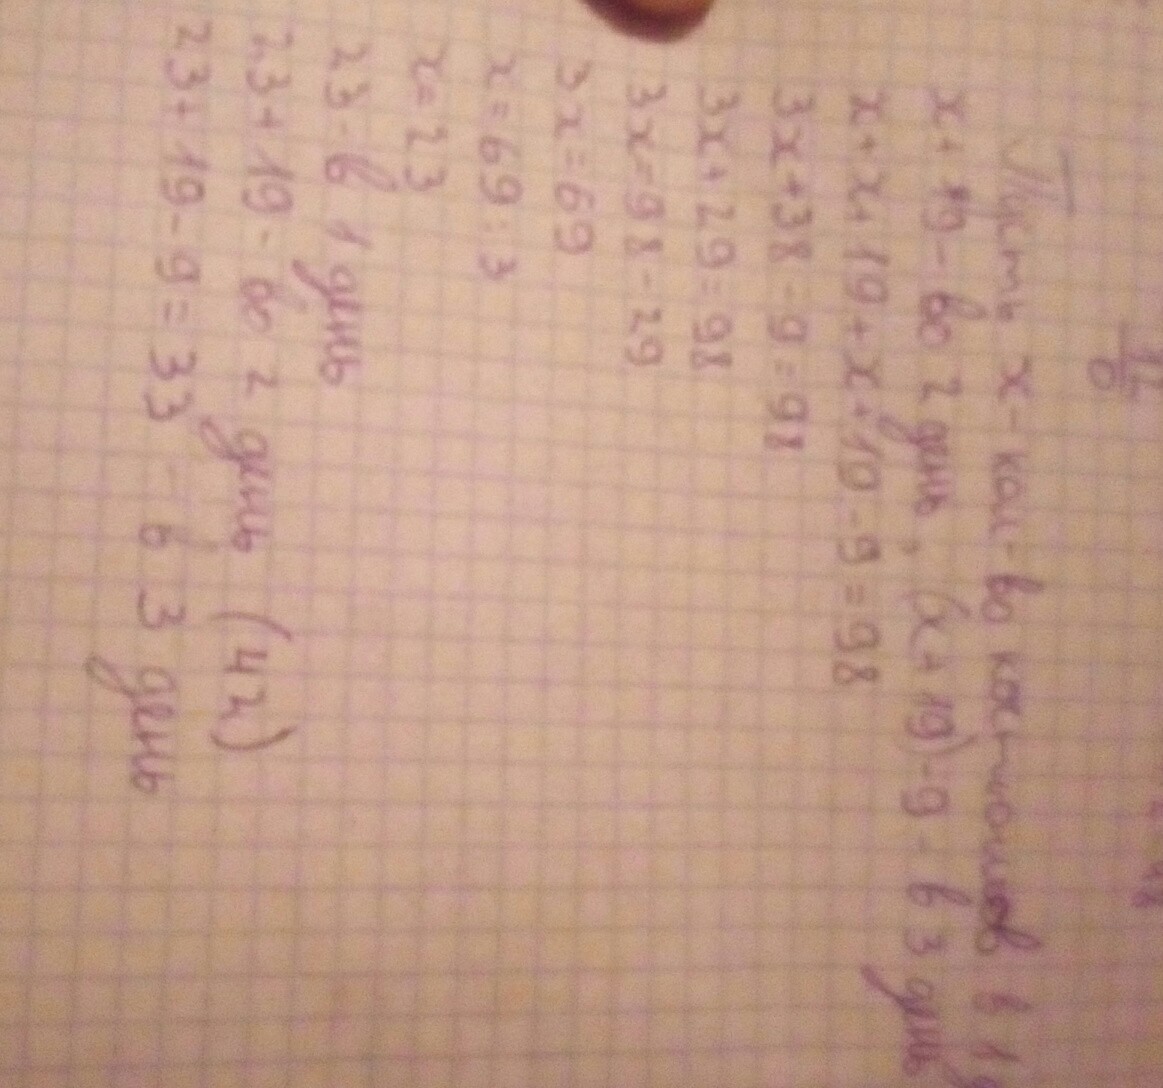 12
6
48
Пусть x - кол-во костюмов в 1
x + 19 - во 2 день, (x + 19) - 9 - в 3 день
x + x + 19 + x + 19 - 9 = 98
3x + 38 - 9 = 98
3x + 29 = 98
3x = 98 - 29
3x = 69
x = 69 : 3
x = 23
23 - в 1 день
23 + 19 - во 2 день (42)
23 + 19 - 9 = 33 - в 3 день